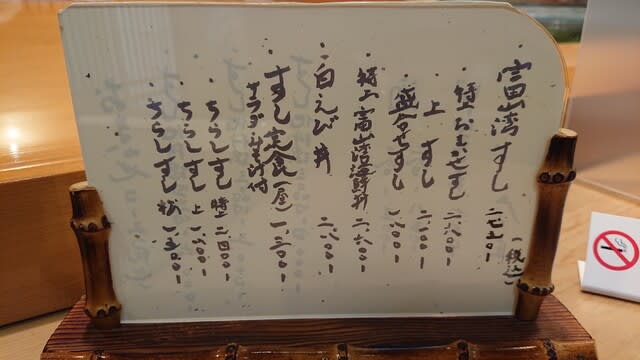 ・富山湾すし 二七五〇ー
(税込)
・特上おまかせすし 二八〇〇ー
・上すし 二一〇〇ー
・盛合せすし 一八〇〇ー
・特上富山湾海鮮丼 二六〇〇ー
・白えび丼 二八〇〇ー
・すし定食(昼) 一三〇〇ー
サラダ汁付
・ちらしすし 特上 二四〇〇ー
・ちらしすし 上 一八〇〇ー
・ちらしすし 松 一五〇〇ー